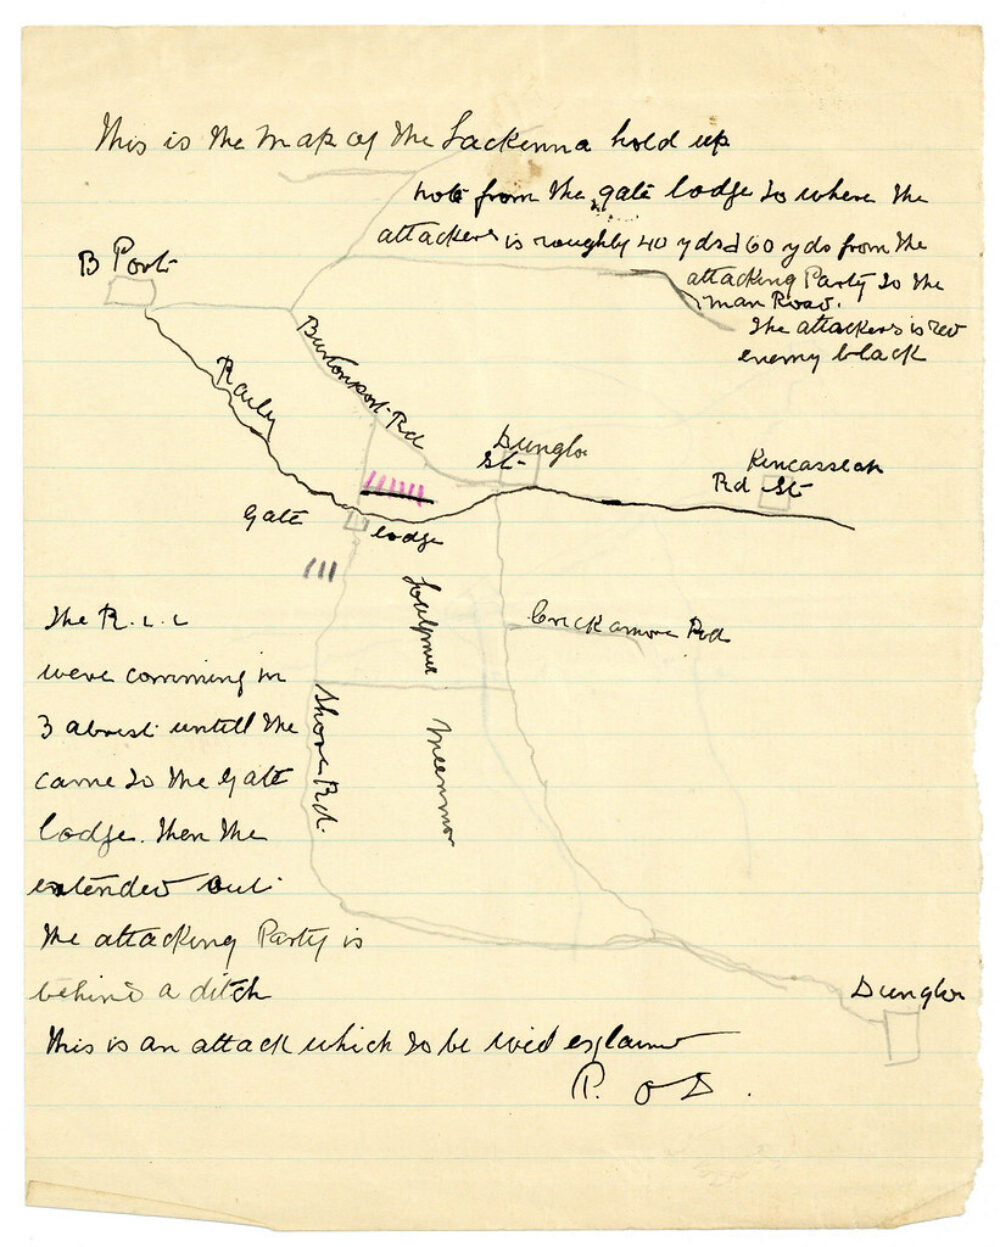 This is the Map of the Lackenna hold up
note from the gate lodge to where the
attackers is roughly 40 yds & 60 yds from the
attacking Party to the
man Road.
The attackers is red
enemy black
B Port
Burtonport Rd
Raily
Dunglo
St
Kincasslah
Rd St
Gate lodge
Crickamore Rd
Meenmor
Shore Rd.
The R.I.C
were comming in
3 abrest untill the
came to the gate
lodge. Then the
extended out
The attacking Party is
behind a ditch
This is an attack which to be wid explained
P. O D.
Dunglo